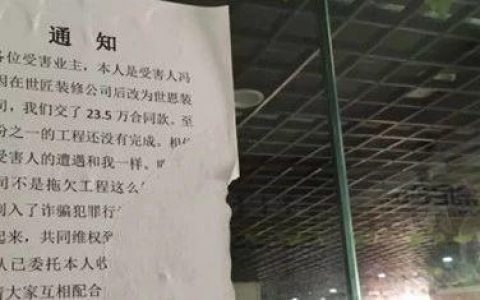 通 知
各位受害业主，本人是受害人冯
因在世匠装修公司后改为世恩装
司，我们交了 23.5 万合同款。至
分之一的工程还没有完成。相信
受害人的遭遇和我一样。
司不是拖欠工程这么
列入了诈骗犯罪行
起来，共同维权
人已委托本人收
请大家互相配合